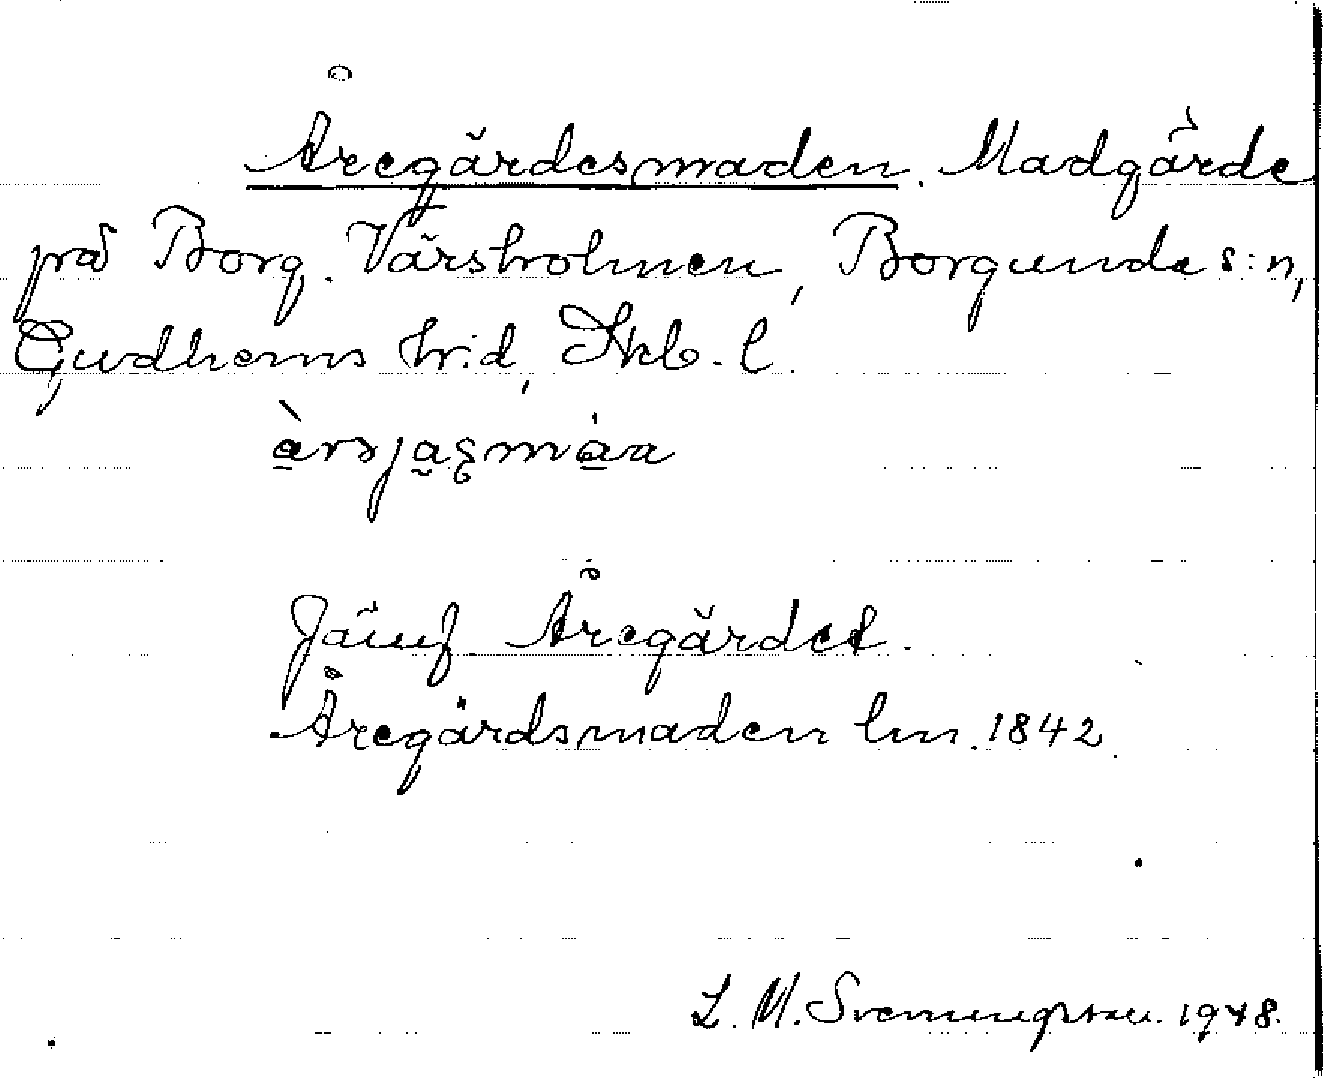 Åregärdesmaden. Madgärde
på Borg. Vårsholmen, Borgunda s:n,
Gudhems hr:d, Skb. l.
Jämf. Åregärdet.
Åregärdsmaden lm. 1842.
L. M. Svenungsson. 1948.